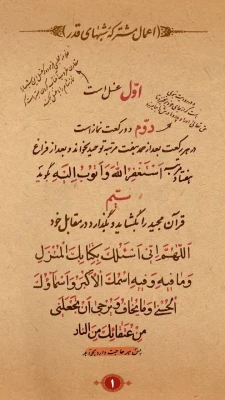 اعمال مشترکه شبهای قدر
اوّل غسل است
دوّم دو رکعت نماز است
در هر رکعت بعد از حمد هفت مرتبه توحید بخواند و بعد از فراغ
هفتاد مرتبه اَستَغفِرُ اللهَ وَاَتوبُ اِلَیهِ گوید
سیّم
قرآن مجید را بگشاید و بگذارد در مقابل خود
اَللّهُمَّ اِنّی اَسئَلُکَ بِکِتابِکَ المُنزَلِ
وَما فیهِ وَفیهِ اسمُکَ الاَکبَرُ وَاَسماؤُکَ
الحُسنی وَما یُخافُ وَیُرجی اَن تَجعَلَنی
مِن عُتَقائِکَ مِنَ النّار
پس هر حاجت دارد بخواهد
۱